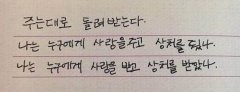 주는대로 돌려받는다.
나는 누구에게 사랑을주고 상처를 줬나.
나는 누구에게 사랑을 받고 상처를 받았나.